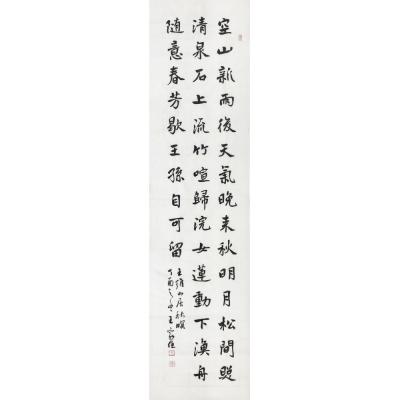 空山新雨後天氣晚来秋明月松間照
清泉石上流竹喧歸浣女蓮動下漁舟
随意春芳歇王孫自可留
王維山居秋暝
丁酉之冬王